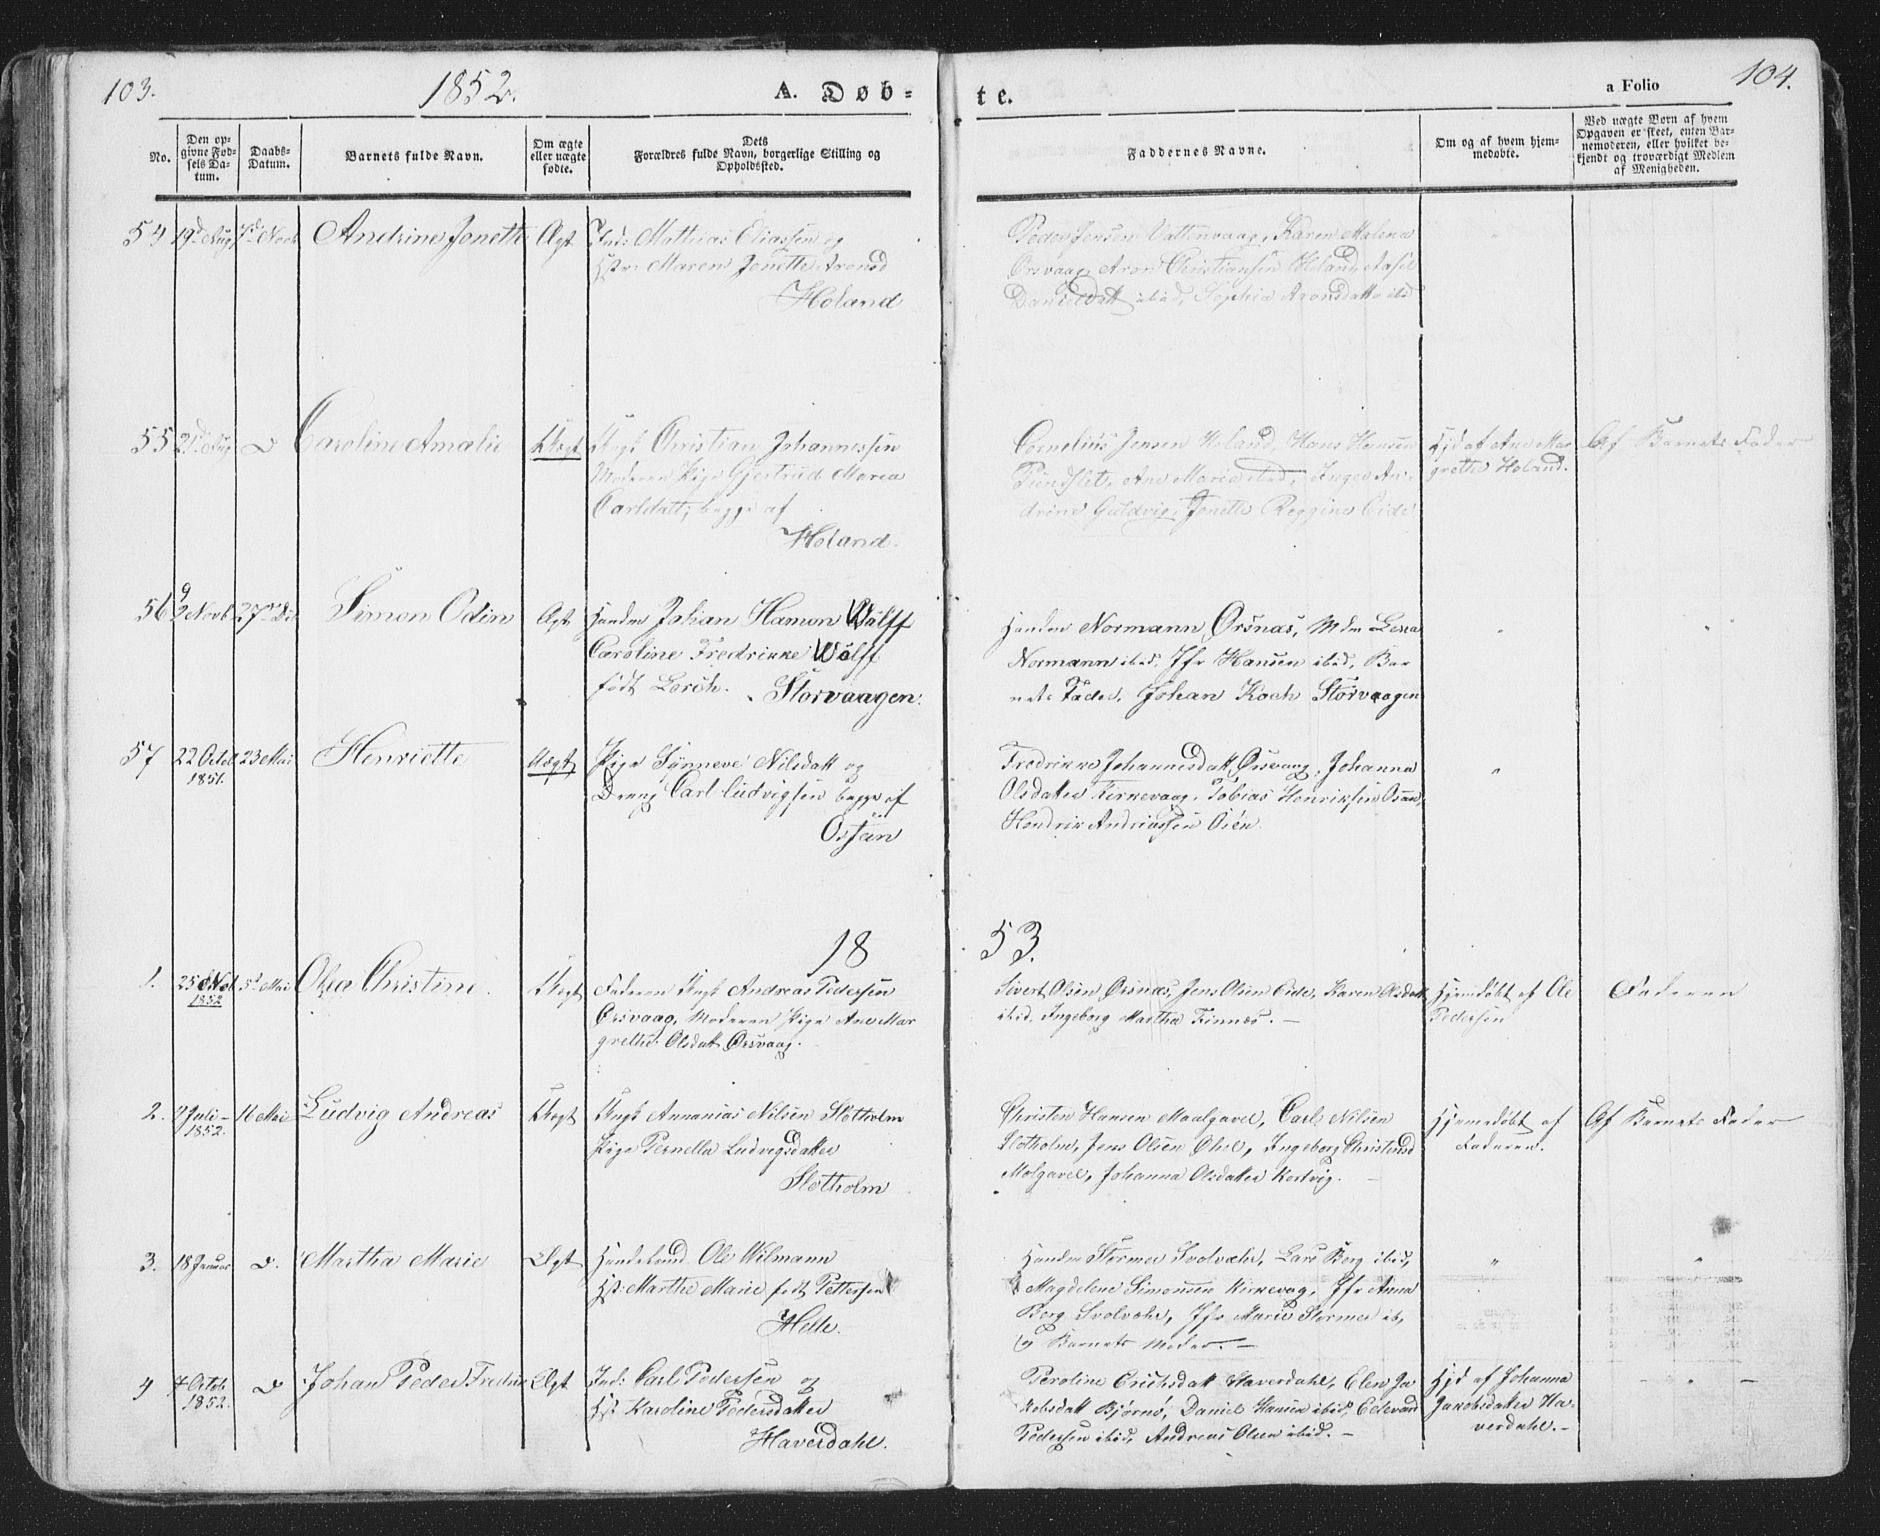 103.
1852.
A. Døb-
te.
a Folio
104.
No.
Den op-
givne Fød-
sels Da-
tum.
Daabs-
Datum.
Barnets fulde Navn.
Om ægte
eller uægte
fødte.
Dets
Forældres fulde Navn, borgerlige Stilling og
Opholdssted.
Faddernes Navne.
Om og af hvem hjem-
medøbte.
Ved uægte Børn af hvem
Opgaven er skeet, enten Bar-
nemoderen, eller hvilket be-
kjendt og troværdigt Medlem
af Menigheden.
54 19d Aug 7d Novb Andrine Jonette Ægt Ind: Mathias Eliassen og
Hstr: Maren Jonette Aronsd
Holand
Peder Jensen Vattenvaag, Karen Malena
Ørsvaag, Aron Christiansen Holand, Aasel
Danielsdatt ibid, Sophia Aronsdatter ibid
55 21d Aug D Caroline Amalie Uægt Ungk Christian Johannessen
Moderen Pige Gjertrud Maria
Carlsdatt, begge af
Holand.
Cornelius Jensen Holand, Hans Hansen
Pundslet, Ane Maria ibid, Inger An-
drine Guldvig, Jonette Reggine Eide
Hjd af Ane Mar
grethe Holand.
Af Barnets Fader
56 9 Novb 27 Simon Odin Ægt Handm Johan Hamon Wulff
Caroline Fredrikke Wolff
født Lorch. Storvaagen.
Handm Normann Ørsnæs, Mdm Lena
Normann ibid, Jfr Hansen ibid, Bar
nets Fader, Johan Koch Storvaagen
57 22 Octob 23 Mai
1851.
Henriette Uægt Pige Synneve Nilsdatt og
Dreng Carl Ludvigsen begge af
Ossan
Fredrikke Johannesdatt Ørsvaag, Johanna
Olsdatter Kirkevaag, Tobias Henriksen Osan,
Hendrik Andriassen Osén.
18
53.
1. 25 Nov 5d Mai
1852
Olea Christine. Uægt Faderen Ungk Andreas Pedersen
Ørsvaag, Moderen Pige Ane Mar
grethe Olsdatt Ørsvaag.
Sivert Olsen Ørsnæs, Jens Olsen Eide, Karen Olsdatt
ibid, Ingeborg Martha Finnæs. —
Hjemdøbt af Ole
Pedersen
Faderen
2. 9 Juli 16 Mai
1852.
Ludvig Andreas Uægt Ungk Annanias Nilsen Slotholm
Pige Pernella Ludvigsdatter
Slotholm
Christen Hansen Maalgavel, Carl Nilsen
Slotholm, Jens Olsen , Ingeborg Christine
Molgavel, Johanna Olsdatter Kortvig. —
Hjemdøbt af
Faderen.
Af Barnets Fader
3. 18 Januar D. Martha Marie Ægt Ole Wilmann
Hst: Marthe Marie født Pettersen
Helle.
Handm Størmer Svolvær, Lars Berg ibid,
Magdelene Simonsen Kirkevog, Jfr Anna
Berg Svolvær, Jfr Marie Størmer ib,
og Barnets Moder. —
4 7 Octob D
1852.
Johan Peder Fredrik Ægt Ind: Carl Pedersen og
Hst Karoline Pedersdatter
Haverdahl.
Peroline Erichsdatt Haverdahl, Elen Ja
kobsdatt Bjørnø, Daniel Hansen ibid, Edevard
Pedersen ibid, Andreas Olsen ibid. —
Hjd af Johanna
Jacobsdatter Ha-
verdahl. —